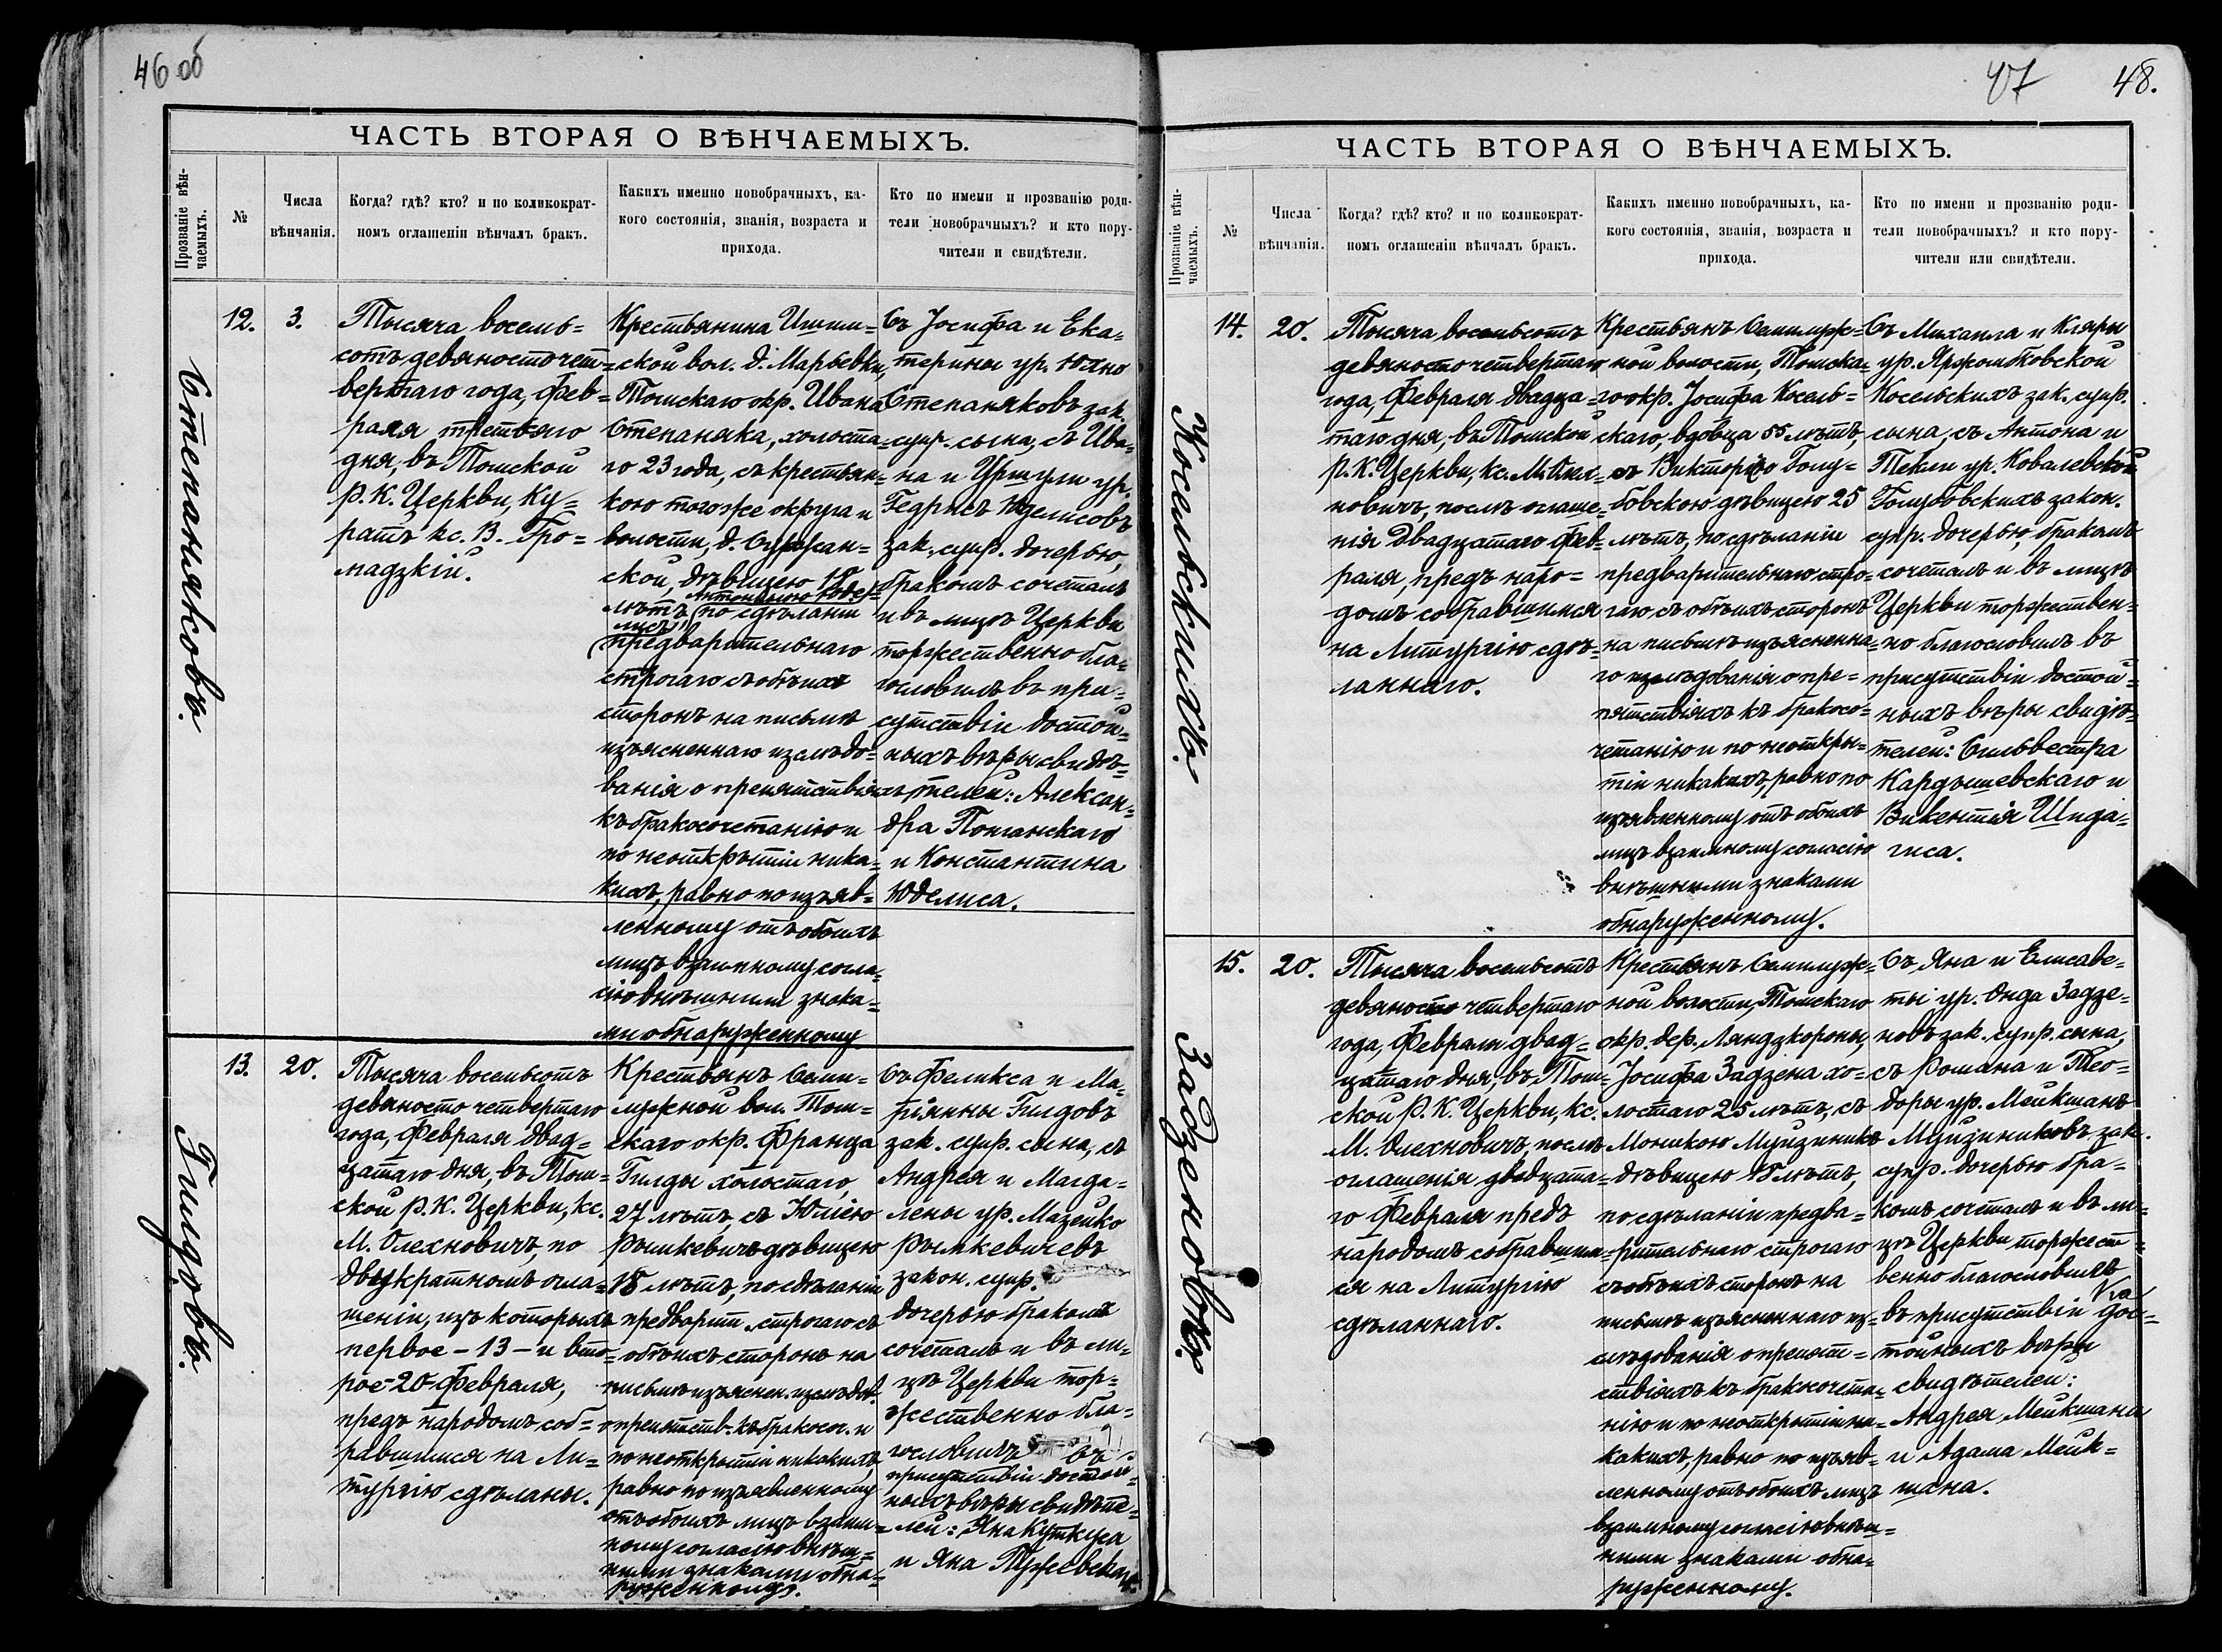 46 об
ЧАСТЬ ВТОРАЯ О ВѢНЧАЕМЫХЪ.
Прозваніе вѣн-
чаемыхъ.
№
Числа
вѣнчанія.
Когда? гдѣ? кто? и по коликократ-
номъ оглашеніи вѣнчалъ бракъ.
Какихъ именно новобрачныхъ, ка-
кого состоянія, званія, возраста и
прихода.
Кто по имени и прозванію роди-
тели новобрачныхъ? и кто пору-
чители и свидѣтели.
Степаняковъ.
12.
3.
Тысяча восемь=
сотъ девяносто чет=
вертаго года, Фев=
раля третьяго
дня, въ Томской
Р. К. Церкви, Ку=
ратъ кс. В. Гро=
мадзкій.
Крестьянина Ишим=
ской вол. д. Марьевки,
Томскаго окр. Ивана
Степаняка, холоста=
го 23 года, съ крестьян=
кою тогоже округа и
волости, д.
ской, дѣвицею 18
Антониною Юде=
лѣтъ (по сдѣланіи
лисъ)
(предварительнаго
строгаго съ обѣихъ
сторонъ на письмѣ
изъясненнаго изслѣдо=
ванія о препятствіяхъ
къ бракосочетанію и
по неоткрытіи ника=
кихъ, равно по изъяв=
ленному отъ обоихъ
лицъ взаимному согла=
сію внѣшними знака=
ми обнаруженному
Съ Іосифа и Ека=
терины ур. Юхно
Степаняковъ зак.
супр. сына, съ Ива=
на и Уршули ур.
Гедрысъ Юделисовъ
зак. супр. дочерью,
бракомъ сочеталъ
и въ лицѣ Церкви
торжественно бла=
гословилъ въ при=
сутствіи достой=
ныхъ вѣры свидѣ=
телей: Алексан=
дра Понганскаго
и Константина
Юделиса.
Гилдовъ.
13.
20.
Тысяча восемьсотъ
девяносто четвертаго
года, Февраля двад=
цатаго дня, въ Том=
ской Р. К. Церкви, кс.
М. Олехновичъ, по
двукратномъ огла=
шеніи, изъ которыхъ
первое - 13 - и вто=
рое - 20 - Февраля,
предъ народомъ соб=
равшимся на Ли=
тургію сдѣланы.
Крестьянъ Семи=
лужной вол. Том=
скаго окр. Франца
Гилды холостаго,
27 лѣтъ, съ Юліею
Рымкевичъ дѣвицею
18 лѣтъ, по сдѣланіи
предварит. строгаго съ
обѣихъ сторонъ на
письмѣ изъяснен. изслѣдов.
о препятств. къ бракосоч. и
по неоткрытіи никакихъ,
равно по изъявленному
отъ обоихъ лицъ взаим=
ному согласію внѣш=
ними знаками обна=
руженному.
Съ Феликса и Ма=
ріянны Гилдовъ
зак. супр. сына, съ
Андрея и Магда=
лены ур. Мазейко
Рымкевичевъ
закон. супр.
дочерью бракомъ
сочеталъ и въ ли=
цѣ Церкви тор=
жественно бла=
гословилъ въ
присутствіи достой=
ныхъ вѣры свидѣте=
лей: Яна Куткуса
и Яна
47
48.
ЧАСТЬ ВТОРАЯ О ВѢНЧАЕМЫХЪ.
Прозваніе вѣн-
чаемыхъ.
№
Числа
вѣнчанія.
Когда? гдѣ? кто? и по коликократ-
номъ оглашеніи вѣнчалъ бракъ.
Какихъ именно новобрачныхъ, ка-
кого состоянія, званія, возраста и
прихода.
Кто по имени и прозванію роди-
тели новобрачныхъ? и кто пору-
чители или свидѣтели.
Косельскихъ.
14.
20.
Тысяча восемьсотъ
девяносто четвертаго
года, Февраля двадца=
таго дня, въ Томской
Р. К. Церкви, кс. М. Олех=
новичъ, послѣ оглаше=
нія двадцатаго Фев=
раля, предъ наро=
домъ собравшимся
на Литургію сдѣ=
ланнаго.
Крестьянъ Семилуж=
ной волости, Томска=
го окр. Іосифа Косель=
скаго, вдовца 55 лѣтъ,
съ Викторіею Голу=
бовскою дѣвицею 25
лѣтъ, по сдѣланіи
предварительнаго стро=
гаго съ обѣихъ сторонъ
на письмѣ изъясненна=
го изслѣдованія о пре=
пятствіяхъ къ бракосо=
четанію и по неоткры=
тіи никакихъ, равно по
изъявленному отъ обоихъ
лицъ взаимному согласію
внѣшними знаками
обнаруженному.
Съ Михаила и Клары
ур. Яржомбковской
Косельскихъ зак. супр.
сына, съ Антона и
Теклы ур. Ковалевской
Голубовскихъ закон.
супр. дочерью, бракомъ
сочеталъ и въ лицѣ
Церкви торжествен=
но благословилъ въ
присутствіи достой=
ныхъ вѣры свидѣ=
телей: Сильвестра
Кардышевскаго и
Викентія Шида=
гиса.
Задзеновъ.
15.
20.
Тысяча восемьсотъ
девяносто четвертаго
года, Февраля двад=
цатаго дня, въ Том=
ской Р. К. Церкви, кс.
М. Олехновичъ, послѣ
оглашенія двадцата=
го Февраля предъ
народомъ собравшим=
ся на Литургію
сдѣланнаго.
Крестьянъ Семилуж=
ной волости, Томскаго
окр. дер. Ляндзкороны,
Іосифа Задзена хо=
лостаго 25 лѣтъ, съ
Моникою Муйзиникъ
дѣвицею 18 лѣтъ,
по сдѣланіи предва=
рительнаго строгаго
съ обѣихъ сторонъ на
письмѣ изъясненнаго из=
слѣдованія о препят=
ствіяхъ къ бракосочета=
нію и по неоткрытіи ни=
какихъ, равно по изъяв=
ленному отъ обоихъ лицъ
взаимному согласію внѣш=
ними знаками обна=
руженному.
Съ Яна и Елисаве=
ты ур. Онда Задзе=
новъ зак. супр. сына,
съ Романа и Тео=
доры ур. Мейкшанъ
Муйзиниковъ зак.
супр. дочерью бра=
комъ сочеталъ и въ ли=
цѣ Церкви торжест=
венно благословилъ
въ присутствіи дос=
тойныхъ вѣры
свидѣтелей:
Андрея Мейкшана
и Адама Мейк=
шана.